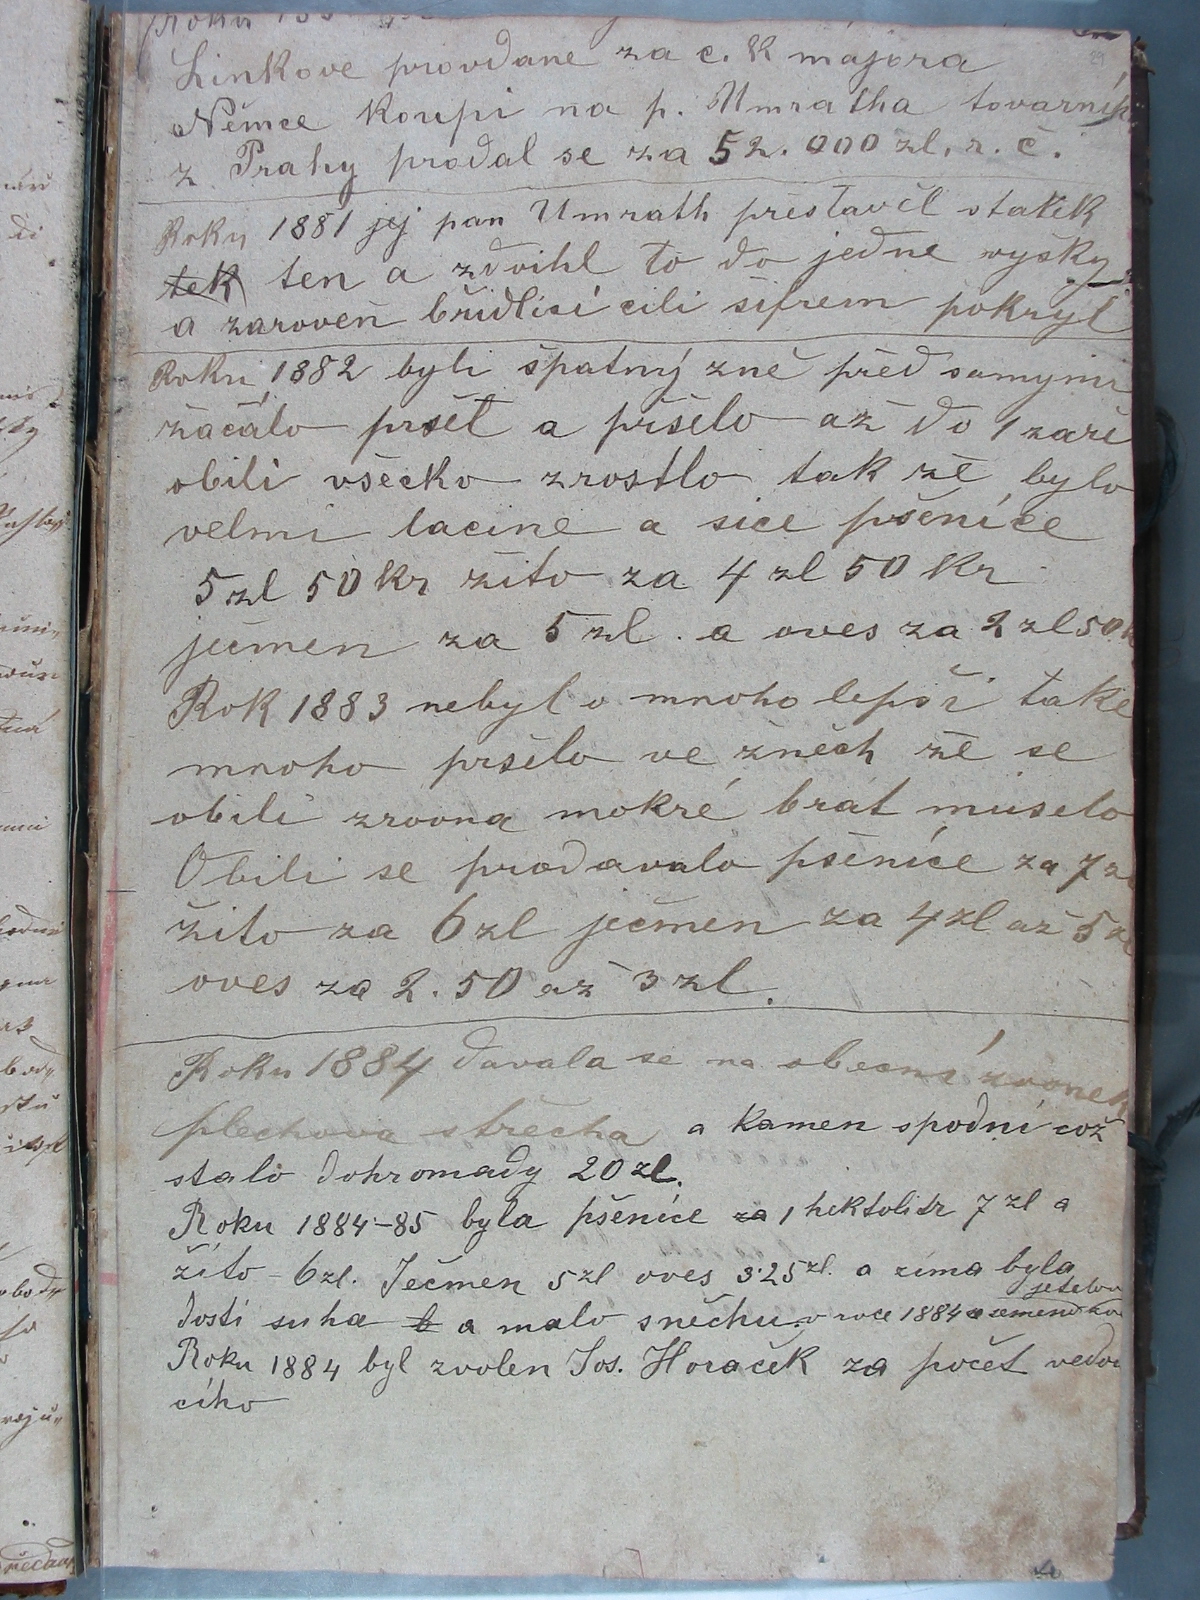 Roku 188
Linkove provdane za c. k majora
Němce koupi na p. Umratha tovarník
z Prahy prodal se za 52.000 zl. r. č.
Roku 1881 jej pan Umrath přestavěl statek
tek ten a zdvihl to do jedne vyšky
a zaroveň břidlicí čili šifrem pokryl
Roku 1882 byli špatný zně před samymi
začálo pršet a pršelo až do 1 zaře
obili všecko zrostlo tak že bylo
velmi lacine a sice pšenice
5 zl 50 kr žito za 4 zl 50 kr
ječmen za 5 zl. a oves za 2 zl 50 k
Rok 1883 nebyl o mnoho lepší take
mnoho pršelo ve žněch že se
obilí zrovna mokré brát muselo
Obili se prodavalo pšenice za 7 z
žito za 6 zl ječmen za 4 zl až 5 zl
oves za 2.50 až 3 zl.
Roku 1884 davala se na obecní zvonek
plechova střecha a kamen spodní což
stalo dohromady 20 zl.
Roku 1884-85 byla pšenice za 1 hektolitr 7 zl a
žito - 6 zl. Ječmen 5 zl oves 3.25 zl. a zima byla
jetelov
dosti suha b a malo sněchu v roce 1884 a semeno
Roku 1884 byl zvolen Jos. Horaček za počet vedou
cího